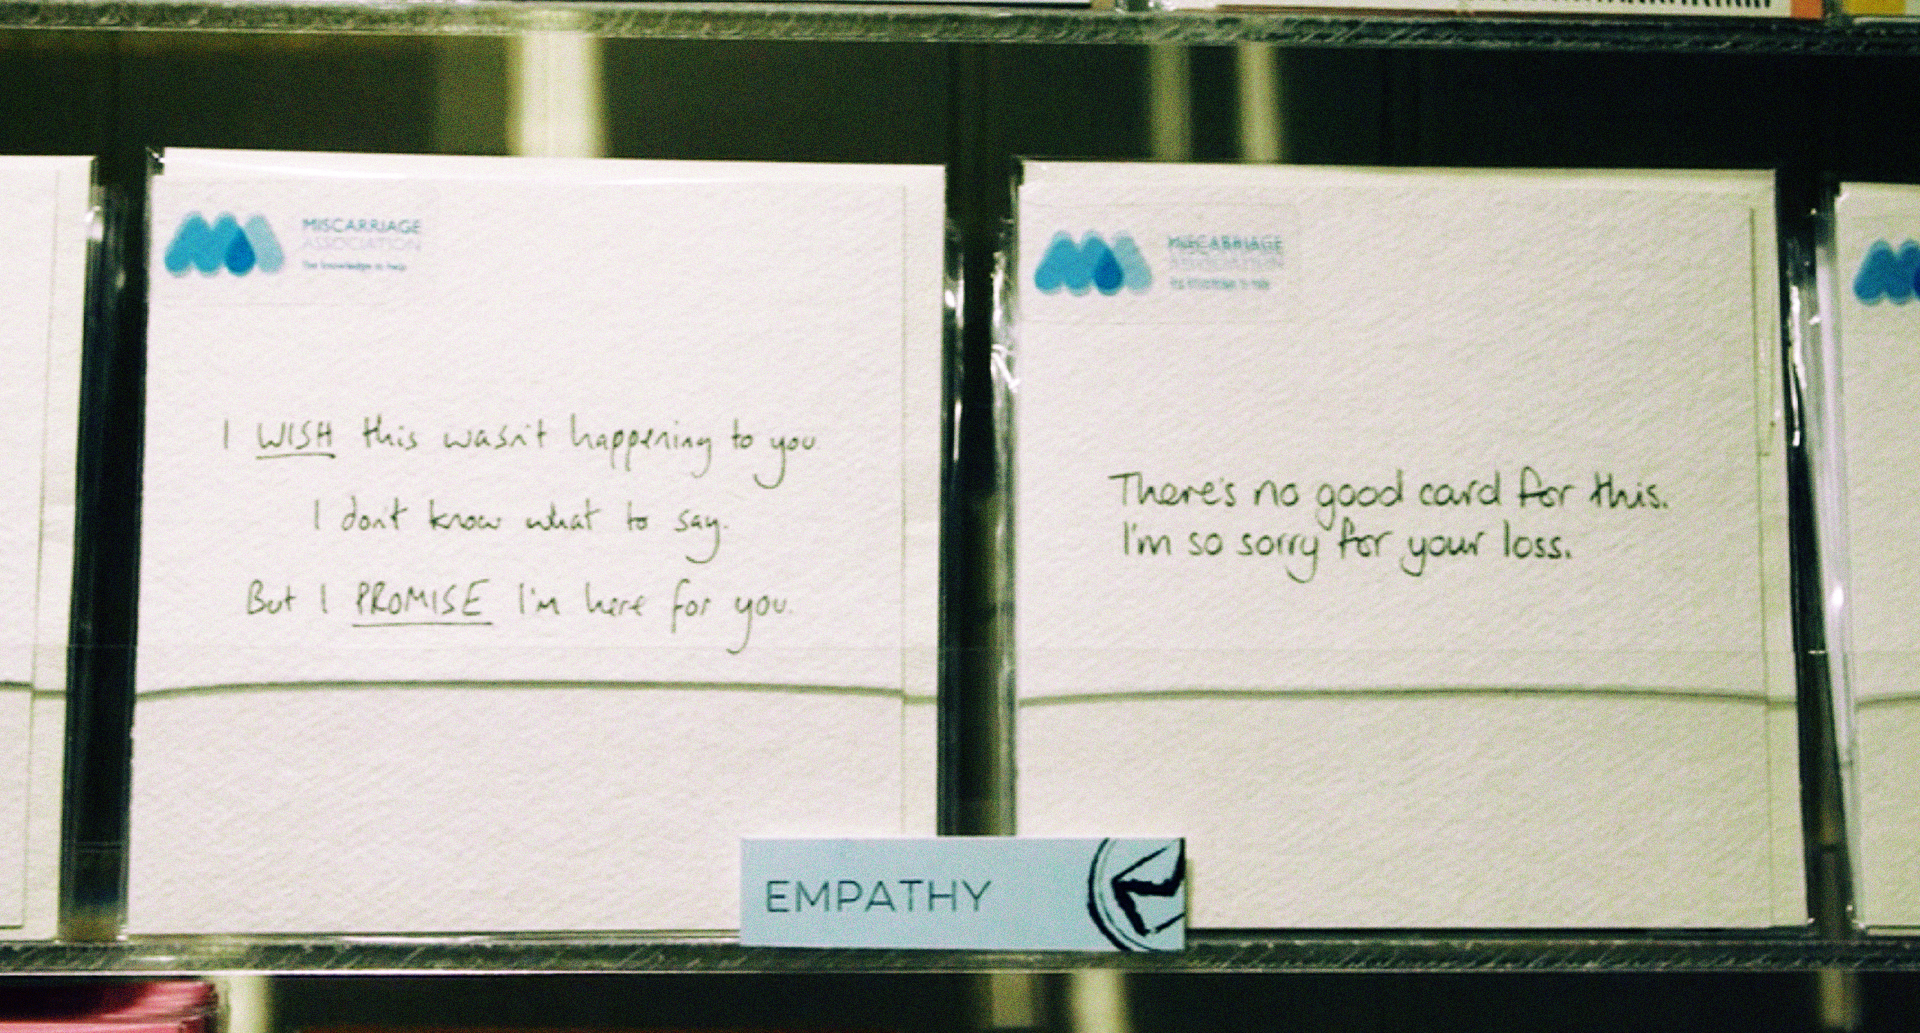 MISCARRIAGE
ASSOCIATION
The knowledge to help
I WISH this wasn't happening to you.
I don't know what to say.
But I PROMISE I'm here for you.
MISCARRIAGE
ASSOCIATION
There's no good card for this.
I'm so sorry for your loss.
EMPATHY